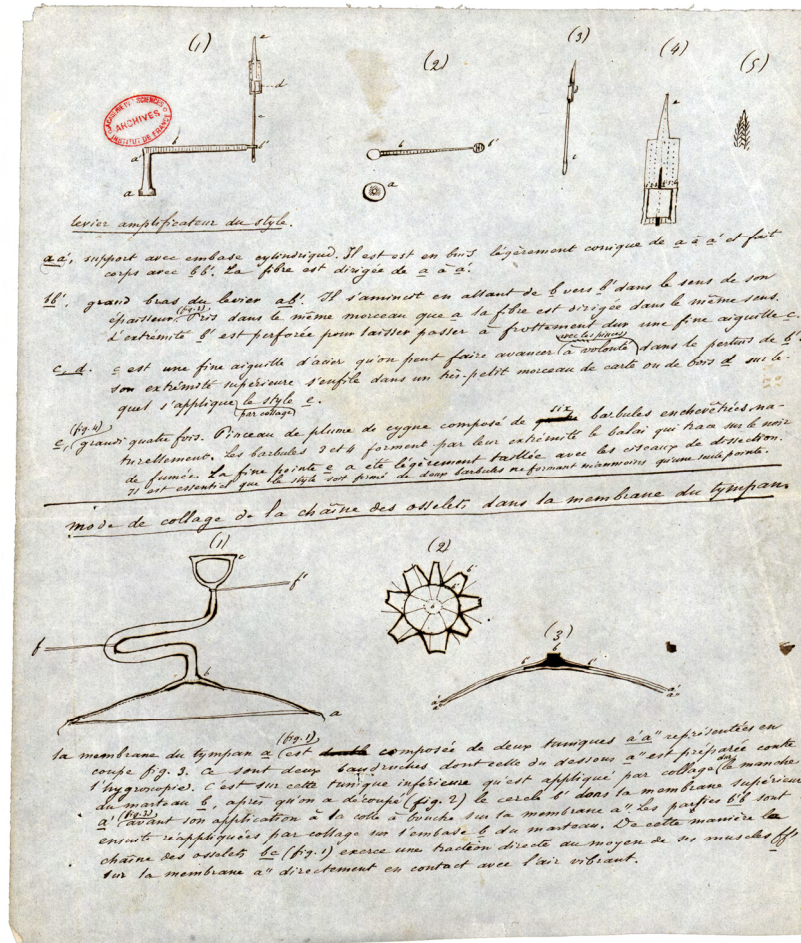 (1)
(2)
(3)
(4)
(5)
e
d
c
b
b'
a'
a
b
a
e
ACADEMIE DES SCIENCES
ARCHIVES
INSTITUT DE FRANCE
levier amplificateur du style.
aa', support avec embase cylindrique. Il est est en buis légèrement conique de a à a' et fait
corps avec bb'. La fibre est dirigée de a à a'.
bb', grand bras du levier ab'. Il s'amincit en allant de b vers b' dans le sens de son
épaisseur (fig. 2). Pris dans le même morceau que a la fibre est dirigée dans le même sens.
L'extrémité b' est perforée pour laisser passer à frottement dur une fine aiguille c.
c, d. c est une fine aiguille d'acier qu'on peut faire avancer (à volonté avec les pinces) dans le pertuis de b'
son extrémité supérieure s'enfile dans un très-petit morceau de carte ou de bois d sur le-
quel s'applique (par collage) le style e.
e, (fig. 4) grandi quatre fois. Pinceau de plume de cygne composé de six barbules enchevêtrées na-
turellement. Les barbules 3 et 4 forment par leur extrémité le balai qui trace sur le noir
de fumée. La fine pointe e a été légèrement taillée avec les ciseaux de dissection.
Il est essentiel que le style soit formé de deux barbules ne formant néanmoins qu'une seule pointe.
mode de collage de la chaîne des osselets dans la membrane du tympan.
(1)
(2)
(3)
c
f'
f
b
a
b'
b
b'
b'
a'
a''
la membrane du tympan a (fig. 1) est composée de deux tuniques a'a'' représentées en
coupe fig. 3. Ce sont deux baudruches dont celle du dessous a'' est préparée contre
l'hygroscopie. C'est sur cette tunique inférieure qu'est appliqué par collage le manche
du marteau b, après qu'on a découpé (fig. 2) le cercle b' dans la membrane supérieure
a' (fig. 2) avant son application à la colle à bouche sur la membrane a''. Les parties b'b sont
ensuite réappliquées par collage sur l'embase b du marteau. De cette manière la
chaîne des osselets bc (fig. 1) exerce une traction directe au moyen de ses muscles ff'
sur la membrane a'' directement en contact avec l'air vibrant.